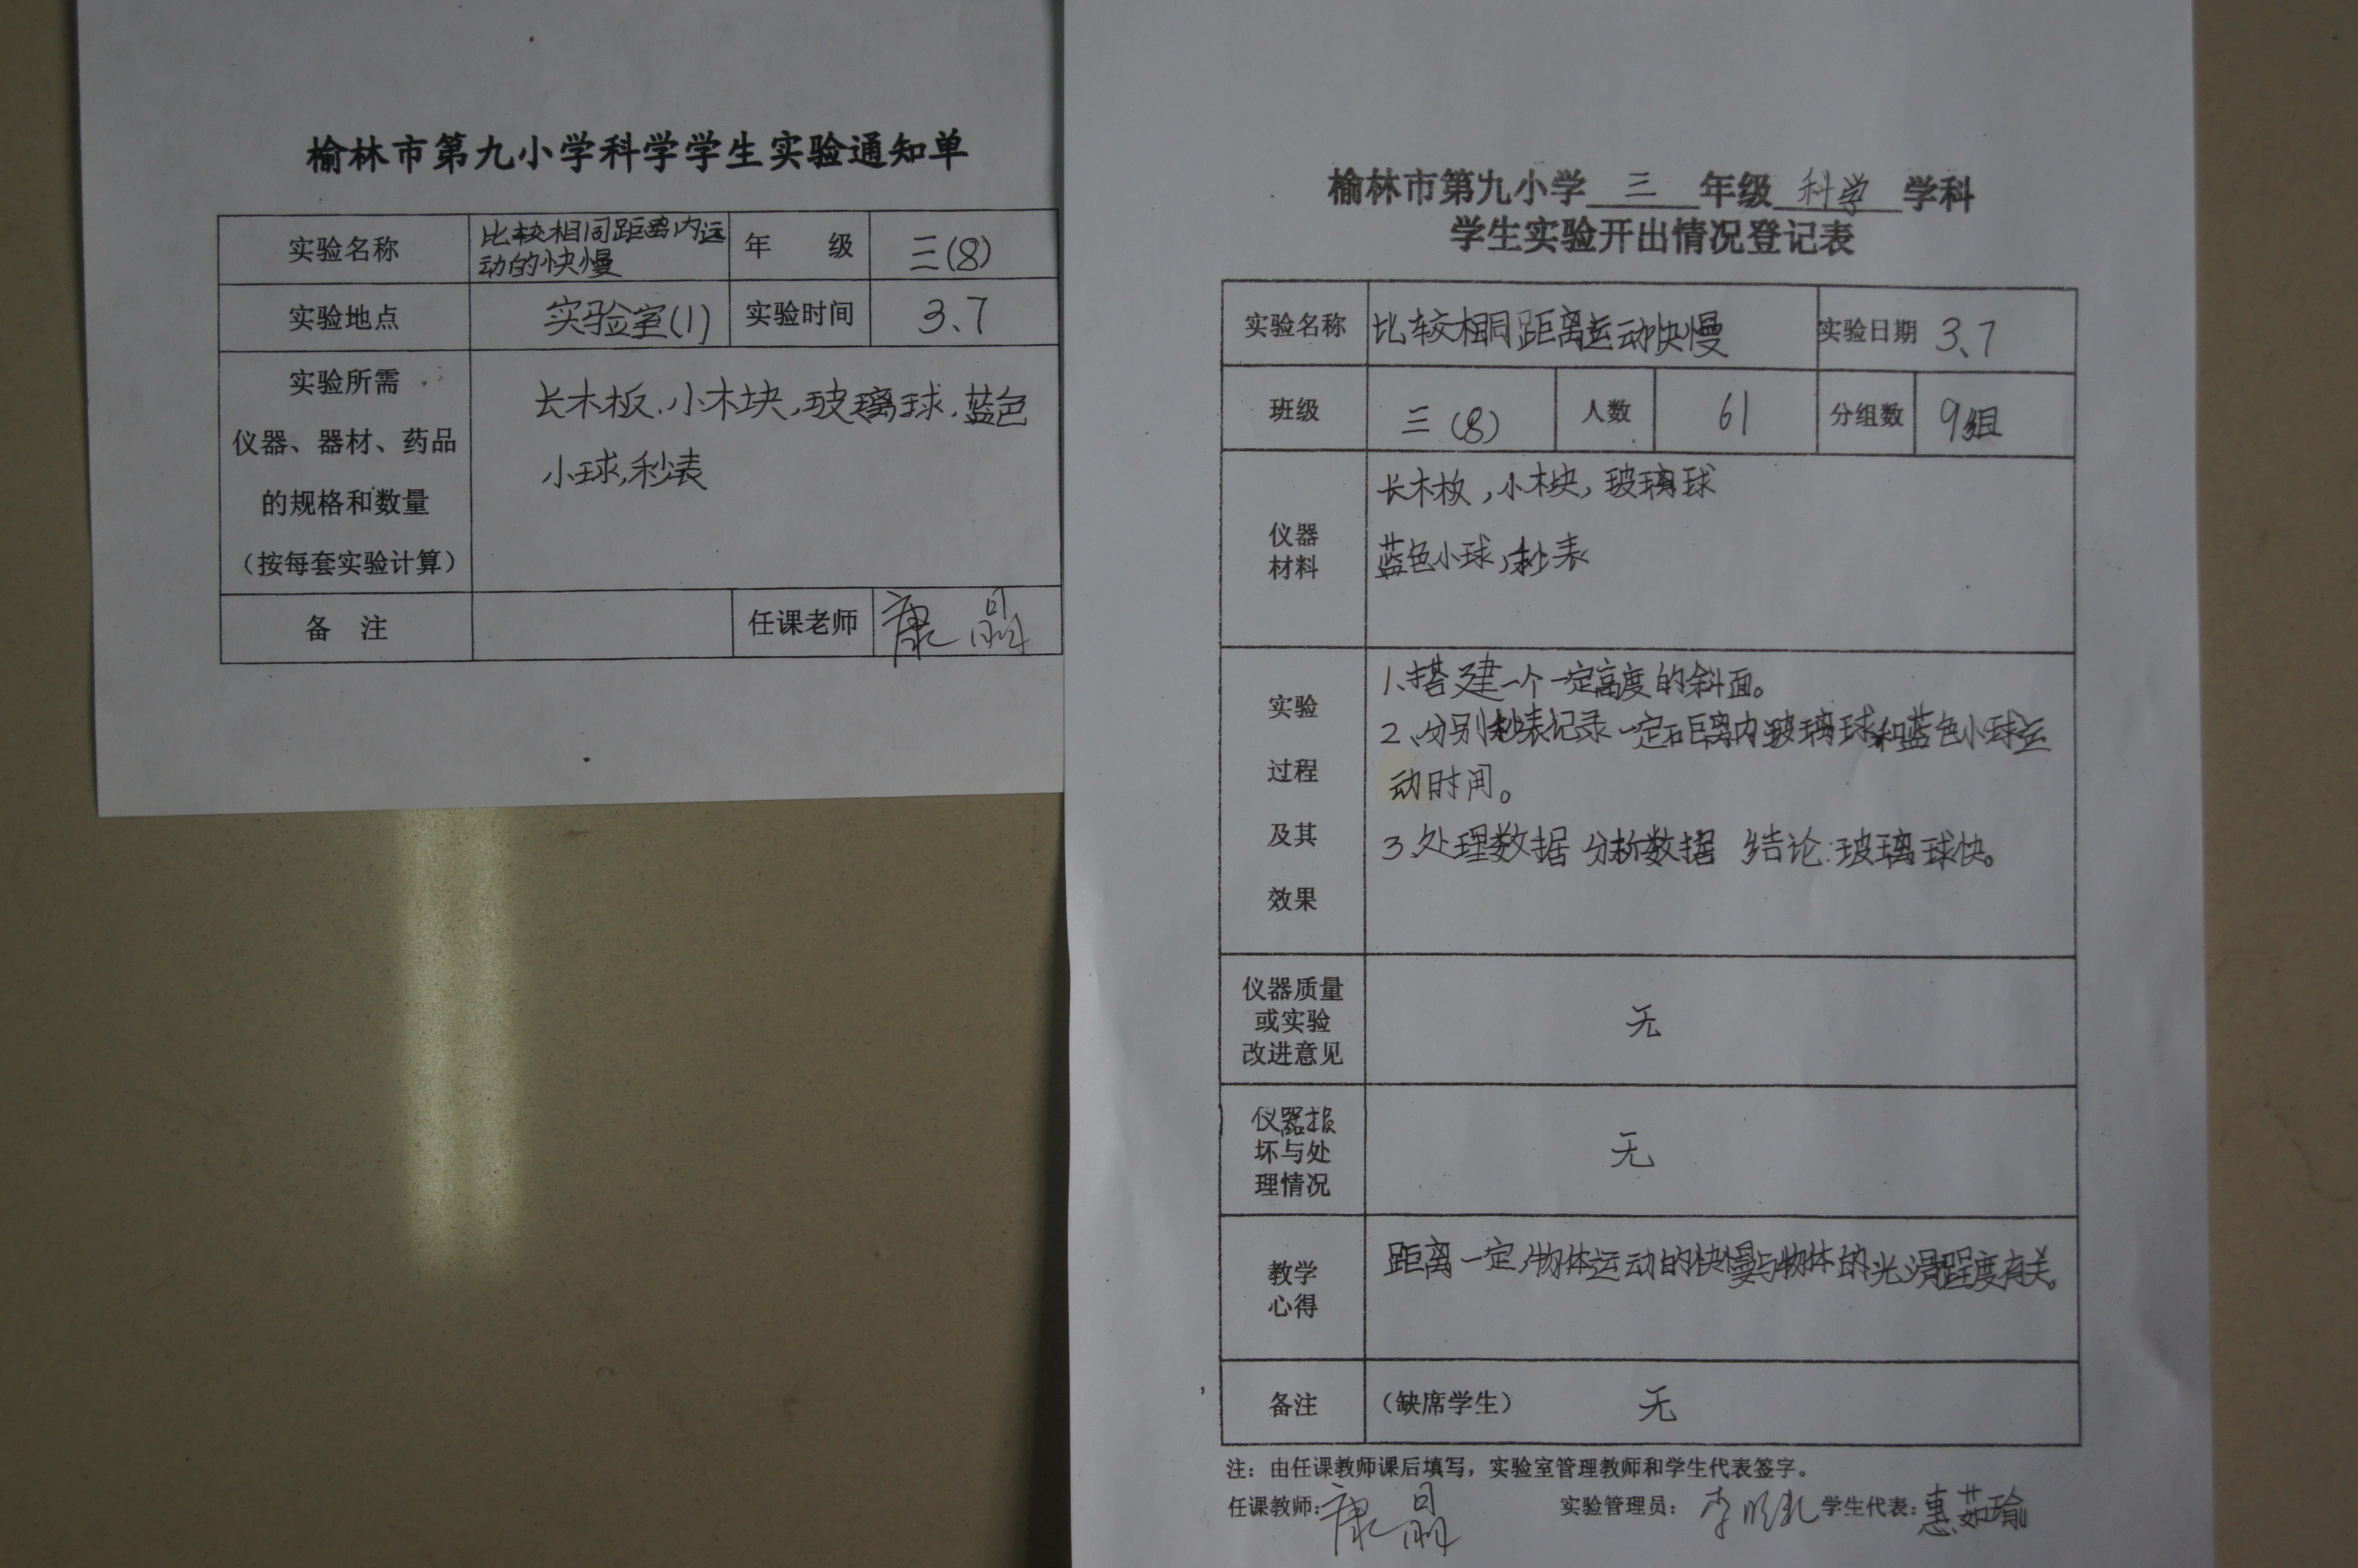 榆林市第九小学科学学生实验通知单
实验名称 比较相同距离内运动的快慢 年 级 三(8)
实验地点 实验室(1) 实验时间 3、7
实验所需
仪器、器材、药品
的规格和数量
(按每套实验计算)
长木板、小木块,玻璃球,蓝色
小球,秒表
备 注 任课老师 康晶
榆林市第九小学 三 年级 科学 学科
学生实验开出情况登记表
实验名称 比较相同距离运动快慢 实验日期 3、7
班级 三(8) 人数 61 分组数 9组
仪器
材料
长木板,小木块,玻璃球
蓝色小球,秒表
实验
过程
及其
效果
1、搭建一个一定高度的斜面。
2、分别秒表记录一定距离内玻璃球和蓝色小球运
动时间。
3、处理数据 分析数据 结论:玻璃球快。
仪器质量
或实验
改进意见
无
仪器损
坏与处
理情况
无
教学
心得
距离一定,物体运动的快慢与物体的光滑程度有关。
备注 (缺席学生) 无
注:由任课教师课后填写,实验室管理教师和学生代表签字。
任课教师:康晶 实验管理员: 学生代表:惠茹瑜